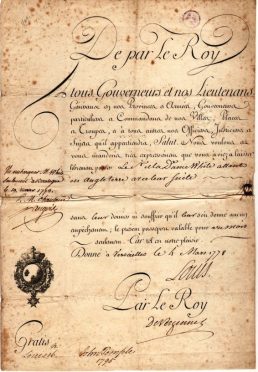 De par le Roy
A tous Gouverneurs et nos Lieutenans
Généraux en nos Provinces et Armées, Gouverneurs
particuliers et Commandans de nos Villes, Places
et Troupes, et à tous autres nos Officiers, Justiciers et
Sujets qu'il appartiendra, Salut. Nous voulons et
vous mandons très expressément que vous ayez à laisser
librement passer Le S. et la Dame White allant
en Angleterre avec leur suite
sans leur donner ni souffrir qu'il leur soit donné aucun
empêchement, le présent passeport valable pour un mois
seulement. Car tel est notre plaisir
Donné à Versailles le 4 Mars 1778
Louis
Par Le Roy
De Vergennes
Gratis
John Temple